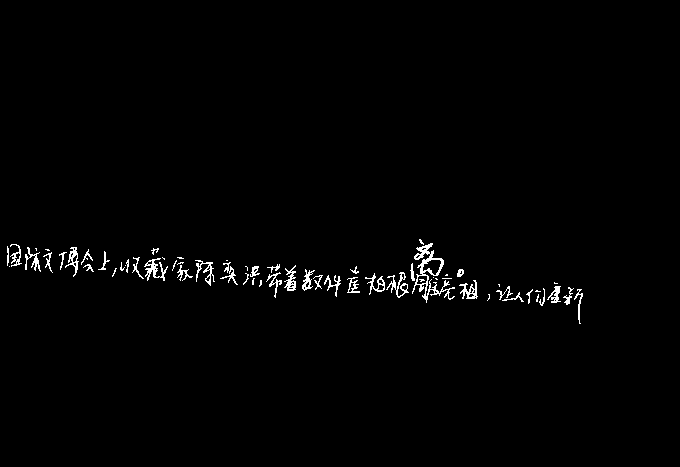 离。
国际文博会上,收藏家陈奕洪带着数件崖柏根雕亮相,让人们重新